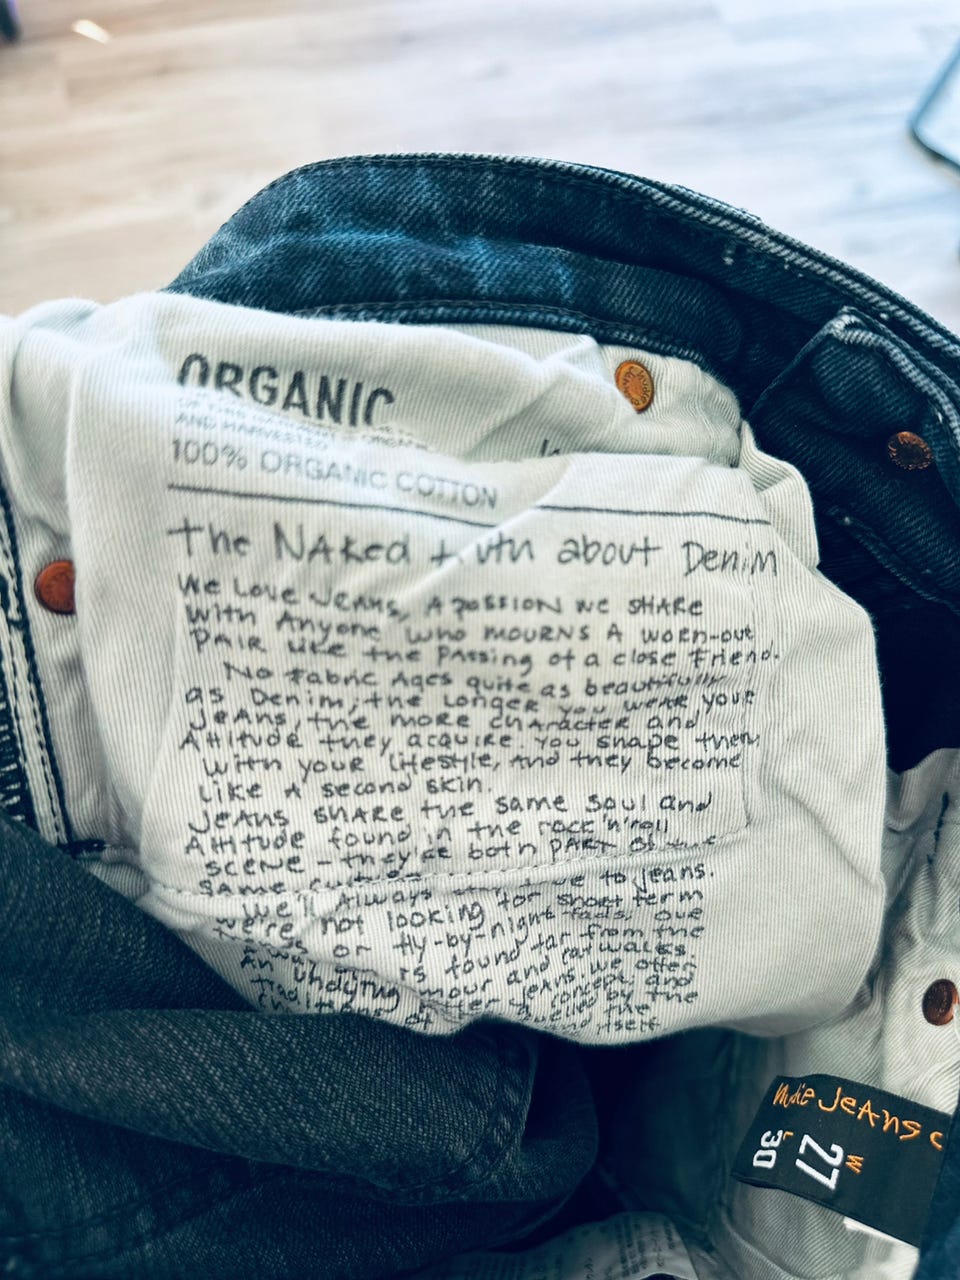 ORGANIC
AND HARVESTED
100% ORGANIC COTTON
The NAKed truth about Denim
We Love Jeans, A passion we share
with Anyone who mourns a worn-out
pair like the passing of a close friend.
No fabric Ages quite as beautifully
as Denim, the Longer you wear your
Jeans, the more character and
Attitude they acquire. You shape them
with your lifestyle, and they become
like a second skin.
Jeans share the same soul and
Attitude found in the rock'n'roll
scene - they're both part of the
same
we'll Always to jeans.
we're not looking for short term
or fly-by-night fads. our
found far from the
and catwalks.
An undying our jeans. we offer
traditions of concept, and
by the
the
itself
nudie Jeans c
W 27
L 30